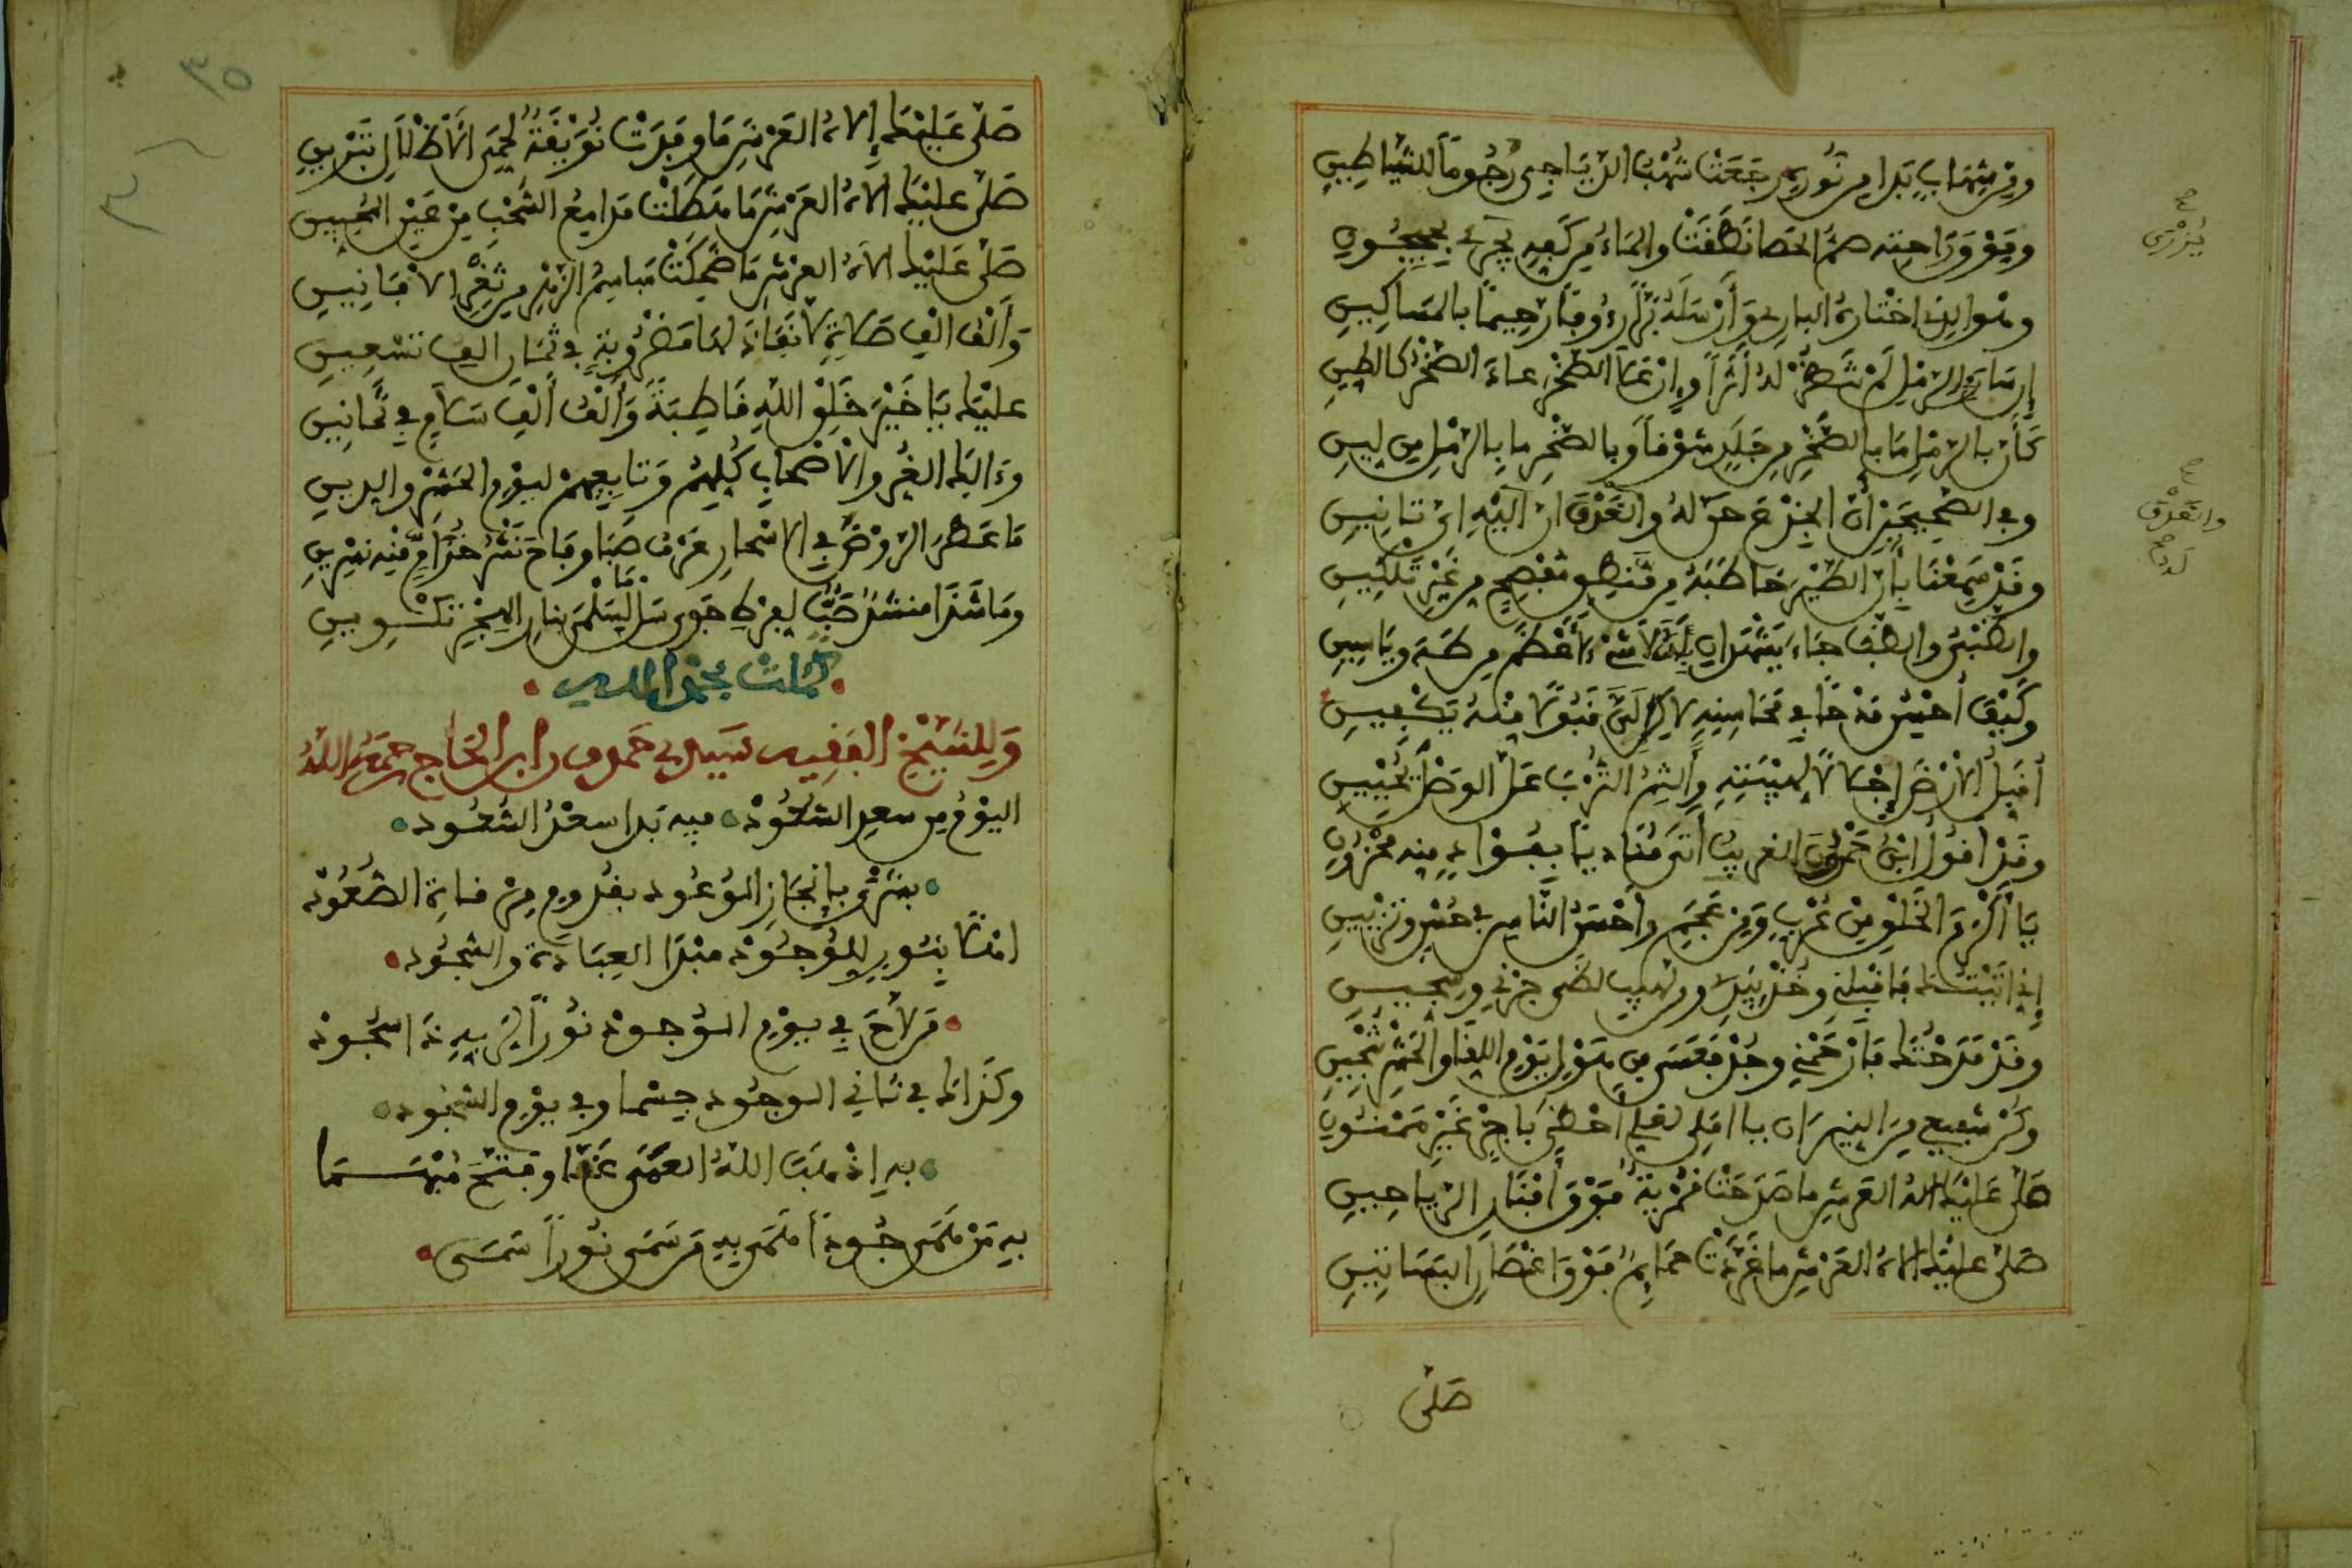 ومن شهاب بدا من نوره رجعت شهب الدياجي رجوما للشياطين
وفوق راحته صم الحصا نطقت والماء من كفه يجري بجيحون
وهو الذي اختاره الباري وأرسله برا رءوفا رحيما بالمساكين
إن سار في الرمل لم تنظر له أثرا وإن علا الصخر عاد الصخر كالطين
كأن بالرمل ما بالصخر من جلد شوقا وبالصخر ما بالرمل من لين
وفي الصحيحين أن الجذع حن له والعذق أن إليه أي تانين
وقد سمعنا بأن الطير خاطبه من منطق مفصح من غير تلكين
والظبي والضب جاءا يشهدان بأن لا شيء أعظم من طه وياسين
وكيف أحسن مدحا في محاسنه لاكن لي قبولا منه يكفيني
أقبل الأرض إجلالا لهيبته وألثم الترب عل الوصل يحييني
وقد أقول ابن حمدون الغريب أتى مناديا بفؤاد منه محزون
يا أكرم الخلق من عرب ومن عجم وأحسن الناس في حسن وتزيين
إني أتيتك فاقبلني وخذ بيدي ومن لهيب لظى جرني وسجين
وقد مدحتك فارحمني وجد فعسى من هول يوم اللقا والحشر تنجيني
وكن شفيعي من النيران يا أملي لعلي أحظى بأجر غير ممنون
صلى عليك إلاه العرش ما صدحت قمرية فوق أفنان الرياحين
صلى عليك إلاه العرش ما غردت حمايم فوق أغصان البساتين
صلى
يزري
والعذق
لديه
صلى عليك إلاه العرش ما وفدت نويقة لحمى الأطلال تبريني
صلى عليك إلاه العرش ما هطلت مدامع السحب من عين المحبين
صلى عليك إلاه العرش ما ضحكت مباسم الزهر من ثغر الأفانين
وألف ألف صلاة لا نفاد لها مضروبة في ثمان ألف تسعين
عليك يا خير خلق الله قاطبة وألف ألف سلام في ثمانين
وءالك الغر والأصحاب كلهم وتابعيهم ليوم الحشر والدين
ما عطر الروض في الأسحار عرف صبا وفاح نشر خزام منه نسرين
وما شدا منشد صب لفرط جوى ما سال سلمى بنار الهجر تكويني
كملت بحمد الله
وللشيخ الفقيه سيدي حمدون ابن الحاج رحمه الله
اليوم من سعد السعود فيه بدا سعد السعود
بشرى بإنجاز الوعود بقدوم من فاته الصعود
أهلا بنور للوجود مبدا العبادة والسجود
من لاح في يوم الوجود نورا لربه ذا سجود
وكذاك في ثاني الوجود جسما وفي يوم الشهود
به إذ هب الله العمى عنا وفتح مبهما
به من همى جودا همى به من سمى نورا سمى
٣٥